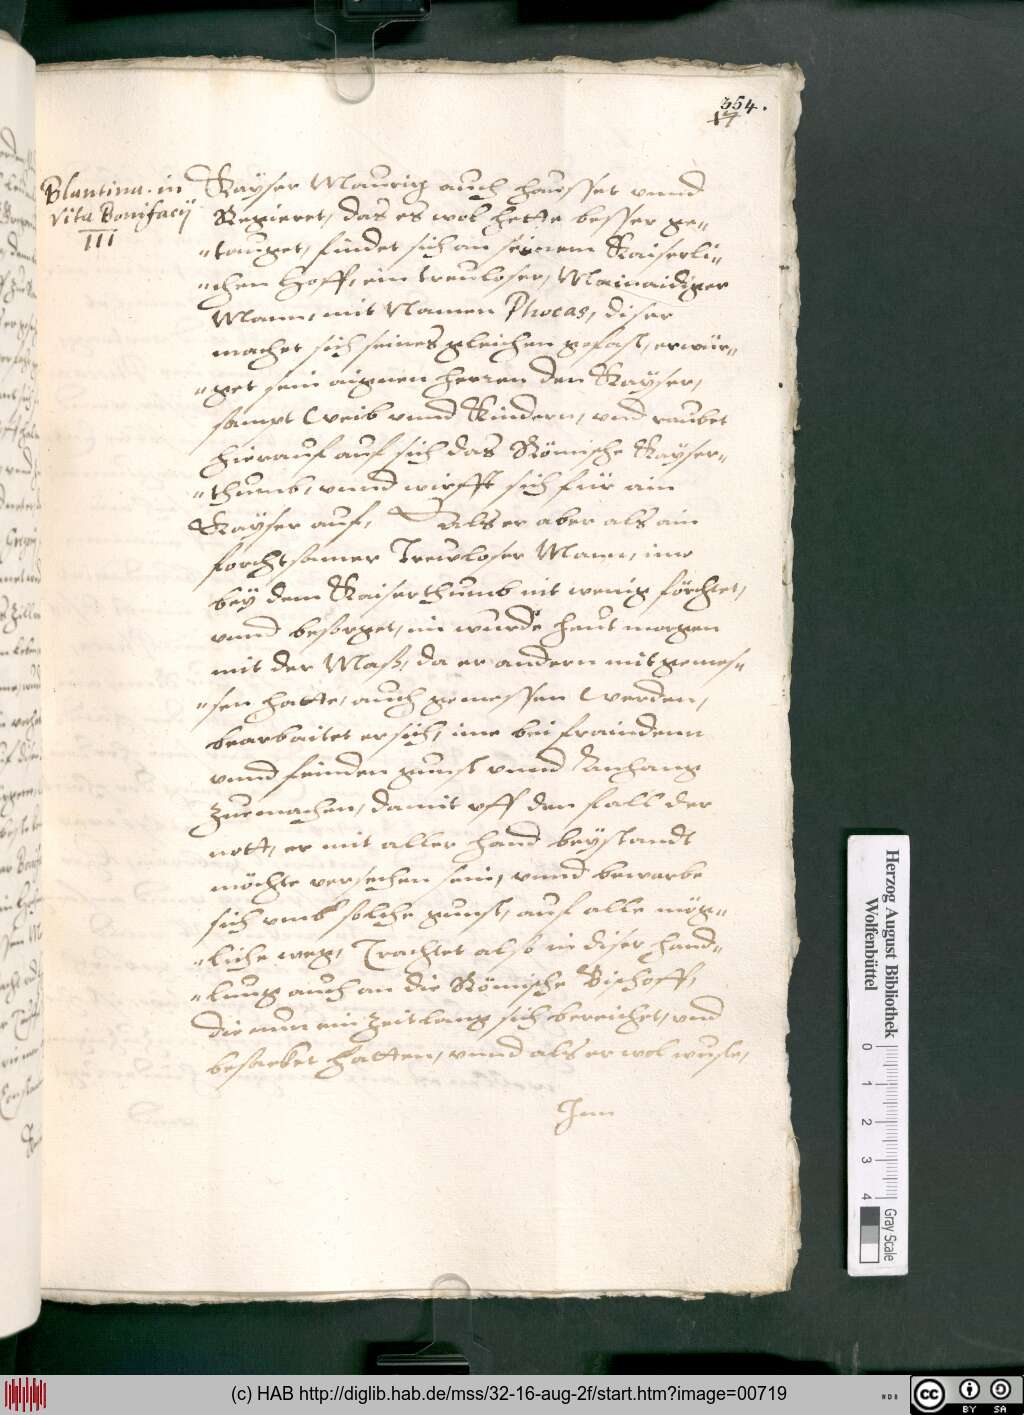 354.
17
Blantina. in
vita Bonifacij
III
Kayser Mauritz auch hausset vnnd
Regieret, das es wol hette besser ge-
-tauget, findet sich an seinem Kaiserli-
-chen Hoff, ein treuloser, Mainaidiger
Mann, mit Namen Phocas, diser
machet sich seines gleichen gefast, erwür-
-get sein aignen herren den Kayser,
sampt Weib vnnd Kindern, vnd raubet
hierauf auf sich das Römische Kayser-
-thumb, vnnd wirfft sich für ain
Kayser auf, Als er aber als ain
forchtsamer Trewloser Mann, ime
bey dem Kaiserthumb nit wenig förchtet,
vnnd besorget, im wurde heut morgen
mit der Maß, da er andern mit gemes-
-sen hatte, auch gemessen werden,
bearbaitet er sich, ime bei fraindenn
vnnd feinden gunst vnnd Anhang
zuemachen, damit vff den fall der
nott, er mit aller hand beystandt
möchte versehen sein, vnnd bewarbe
sich vmb solche gunst, auf alle mög-
-liche weg, Trachtet also in diser hand-
-lung auch an die Römische Bischoff,
die nun ein zeitlang sich bereichet, vnd
besacket hatten, vnnd als er wol wuste,
Inn
Herzog August Bibliothek
Wolfenbüttel
0 1 2 3 4
Gray Scale
(c) HAB http://diglib.hab.de/mss/32-16-aug-2f/start.htm?image=00719
WDB
cc BY SA